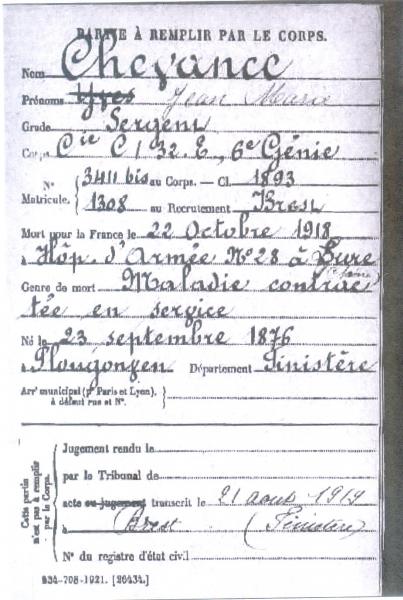 PARTIE À REMPLIR PAR LE CORPS.
Nom Chevance
Prénoms Yves Jean Marie
Grade Sergent
Corps Cie C 1 32 E, 6e Génie
N° 3411 bis au Corps. — Cl. 1893
Matricule. 1308 au Recrutement Brest
Mort pour la France le 22 Octobre 1918
à Hôp. d'Armée N°28 à Bure
Genre de mort Maladie contrac
tée en service
Né le 23 septembre 1876
à Plougonven Département Finistère
Arrt municipal (pr Paris et Lyon),
à défaut rue et N°.
Cette partie
n'est pas à remplir
par le Corps.
Jugement rendu le
par le Tribunal de
acte ou jugement transcrit le 21 aout 1919
à Brest (Finistère)
N° du registre d'état civil
534-708-1921. [26434.]